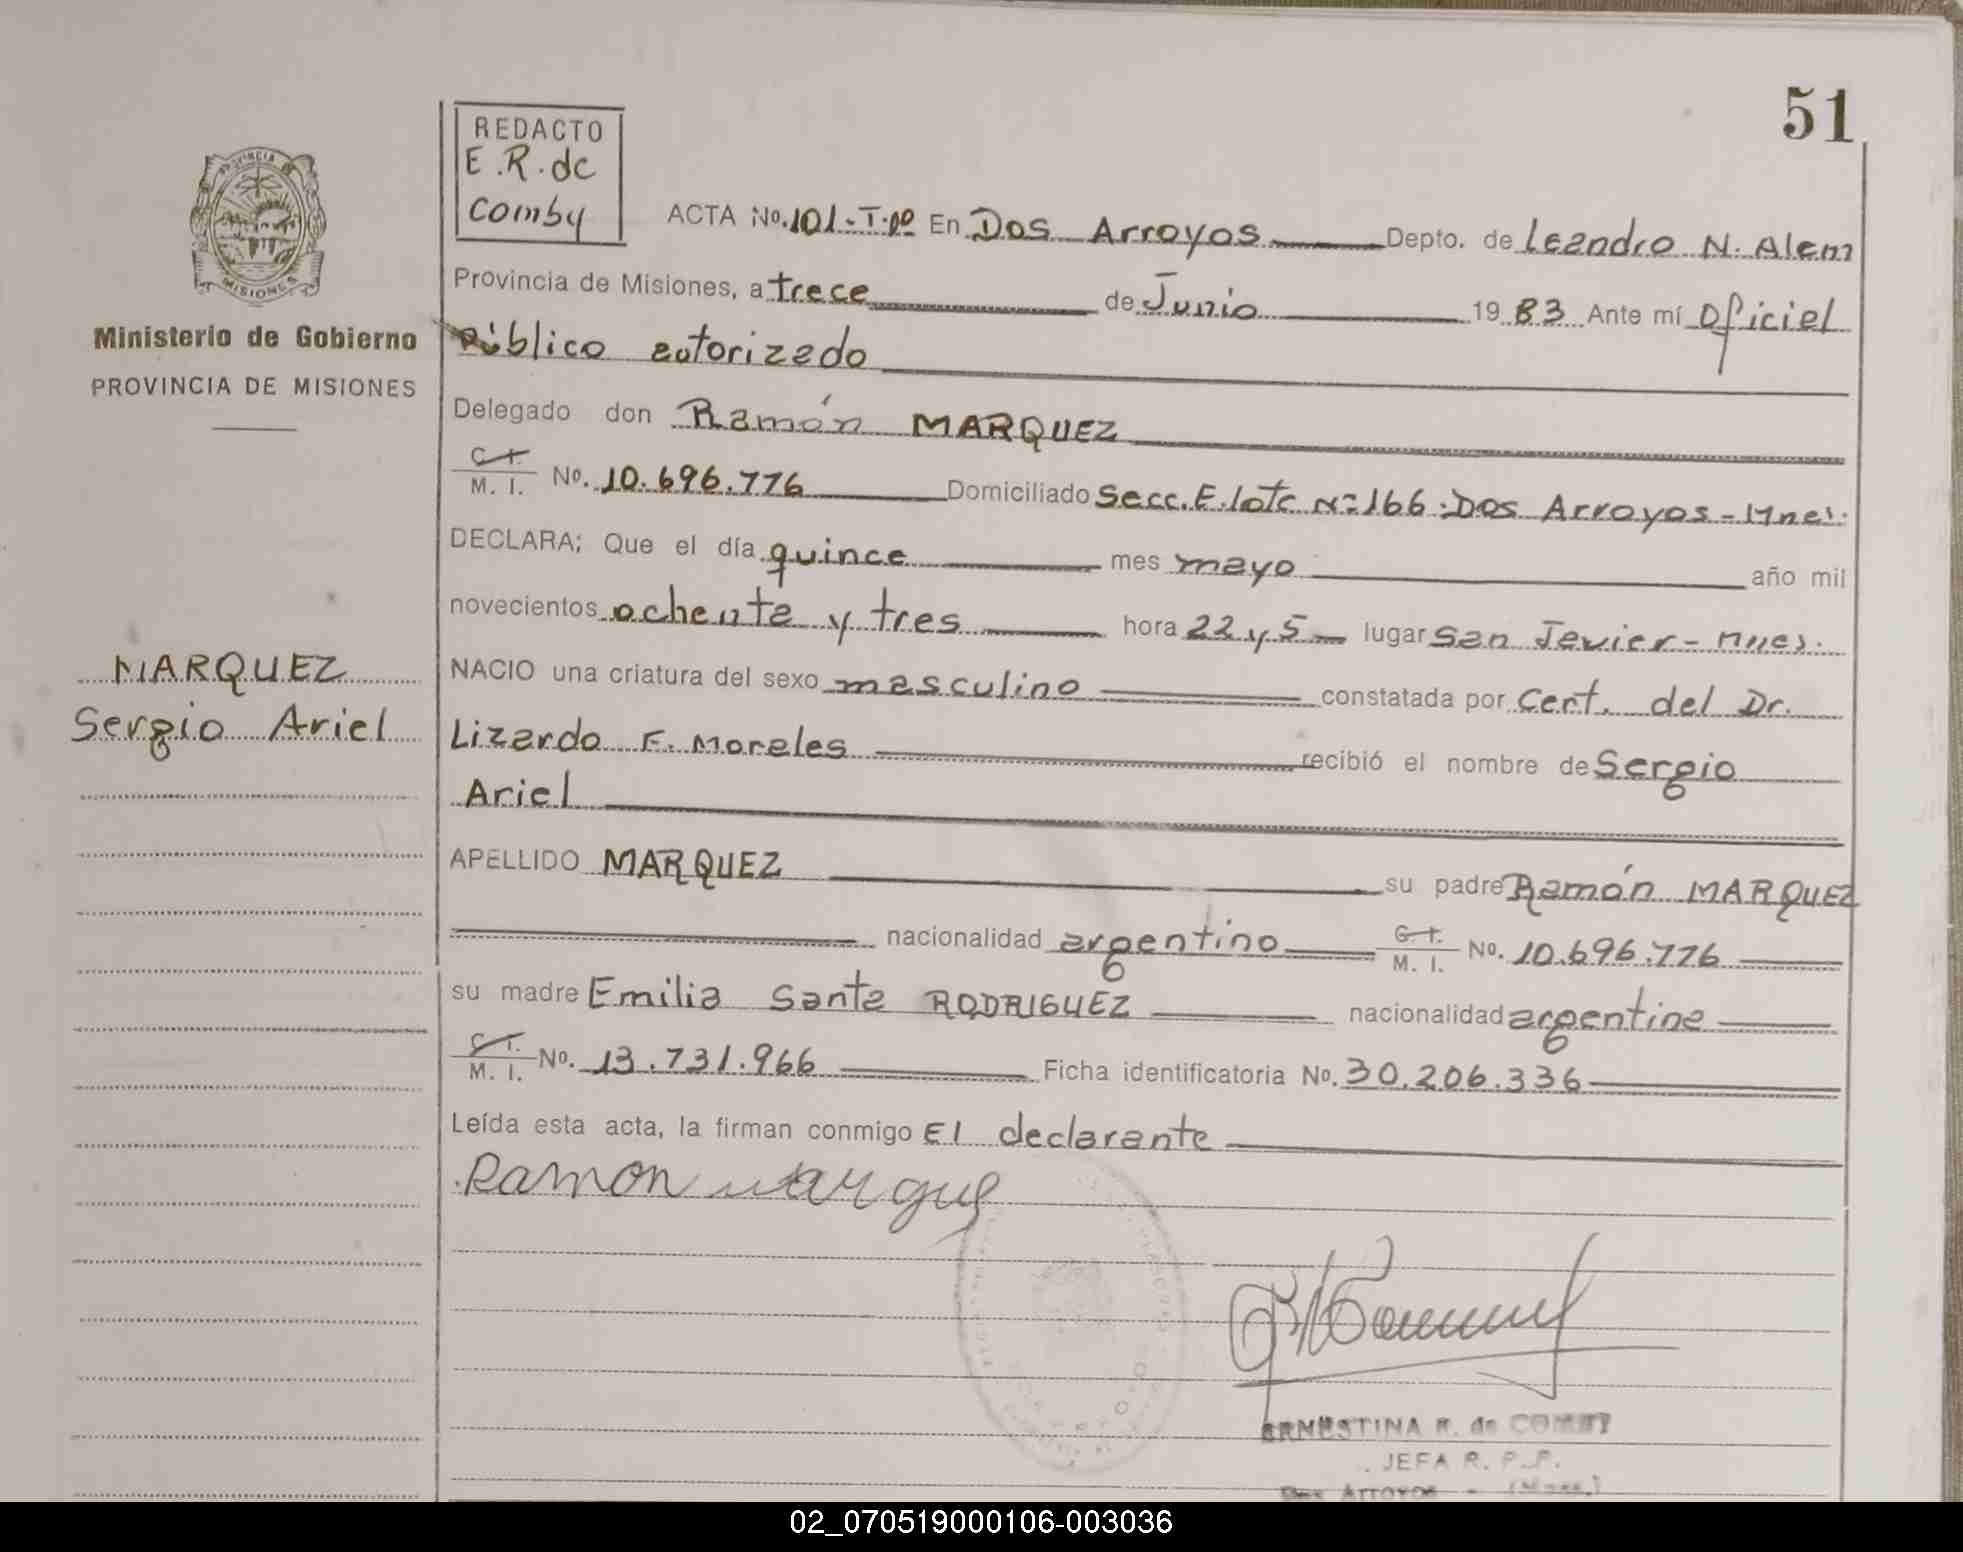 51
REDACTO
E.R. de
Comby
PROVINCIA
MISIONES
Ministerio de Gobierno
PROVINCIA DE MISIONES
MARQUEZ
Sergio Ariel
ACTA No. 101-T.Iº En Dos Arroyos Depto. de Leandro N. Alem
Provincia de Misiones, a trece de Junio 1983 Ante mí Oficial
Público autorizado
Delegado don Ramón MARQUEZ
C. I. M. I. No. 10.696.776 Domiciliado Secc. E. lote Nº 166. Dos Arroyos - Mnes.
DECLARA; Que el día quince mes mayo año mil
novecientos ochenta y tres hora 22 y 5 lugar San Javier - Mnes.
NACIO una criatura del sexo masculino constatada por Cert. del Dr.
Lizardo F. Morales recibió el nombre de Sergio
Ariel
APELLIDO MARQUEZ su padre Ramón MARQUEZ
nacionalidad argentino C. I. M. I. No. 10.696.776
su madre Emilia Santa RODRIGUEZ nacionalidad argentina
C. I. M. I. No. 13.731.966 Ficha identificatoria No. 30.206.336
Leída esta acta, la firman conmigo El declarante
Ramon Marques
ERNESTINA R. de COMBY
JEFA R. P. P.
Dos Arroyos - (Mnes.)
02_070519000106-003036